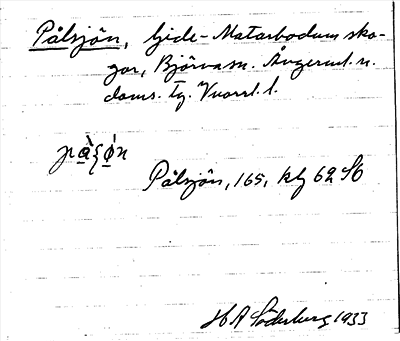 Pålsjön, Gide-Matarbodum sko-
gar, Björnasn. Ångerml. n.
doms. tg. Vnorrl. l.
Pålsjön, 165, kbl 62 SO
H A Söderberg 1933